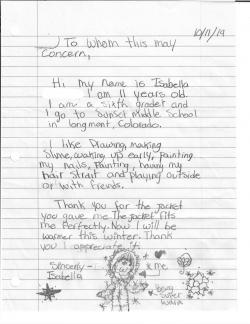 10/11/19
To Whom this may
Concern,
Hi my Name is Isabella
I am 11 years old.
I am a sixth grader and
I go to Sunset Middle School
in longmont, Colorado.
I like Drawing, making
Slime, waking up early, Painting
my nails, Painting, having my
hair strait and playing outside
or with freinds.
Thank you for the jacket
you gave me The jacket fits
me Perfectly. Now I will be
warmer this winter. Thank
you I appreciate it.
Sincerly -
Isabella
me
being
super
warm